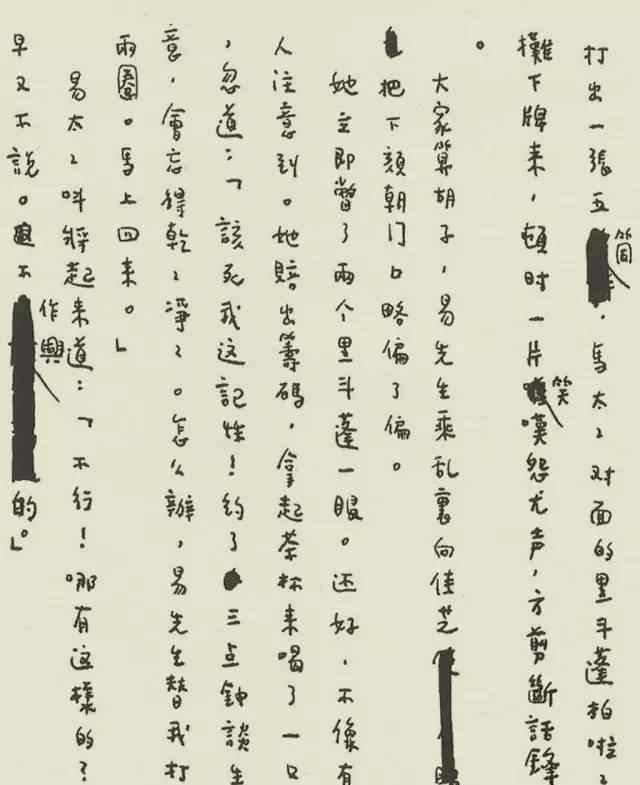 打出一張五筒，馬太〻对面的黑斗蓬拍啦〻
攤下牌来，頓时一片笑嘆怨尤声，方剪斷話鋒
。
大家算胡子，易先生乘乱裏向佳芝
把下頦朝门口略偏了偏。
她立即瞥了兩个黑斗蓬一眼。还好，不像有
人注意到。她賠出籌碼，拿起茶杯来喝了一口
，忽道：「該死我这記性！約了三点鐘談生
意，會忘得乾〻淨〻。怎么辦，易先生替我打
兩圈。馬上回来。」
易太〻叫將起来道：「不行！哪有这樣的？
早又不說。不作興的。」